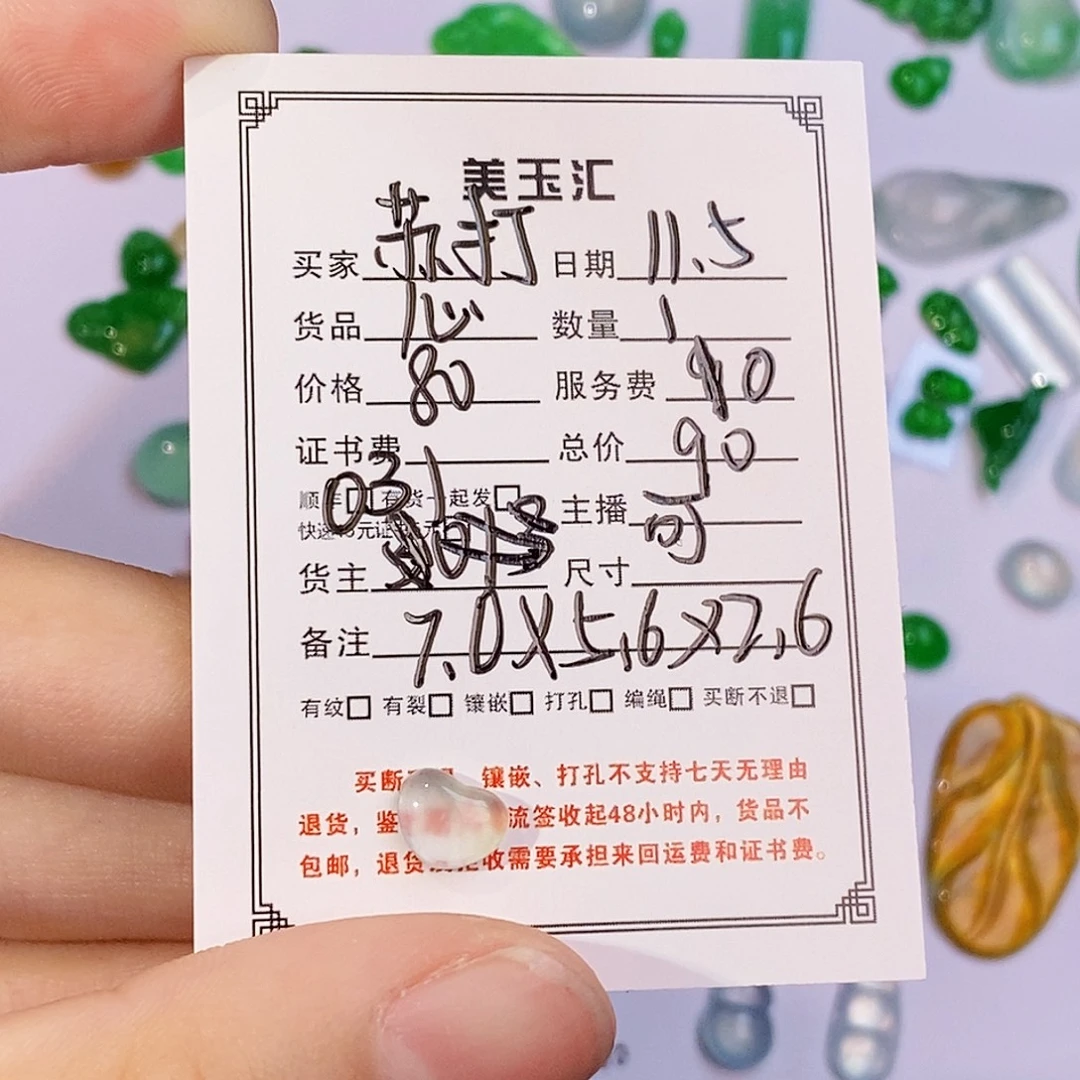 美玉汇
买家 苏打 日期 11.5
货品 心 数量 1
价格 80 服务费 10
证书费 总价 90
顺 有货一起发 主播
快递 元证 元
031
货主 尺寸
备注 7.0X5.6X2.6
有纹 有裂 镶嵌 打孔 编绳 买断不退
买断 镶嵌、打孔不支持七天无理由
退货，鉴 流签收起48小时内，货品不
包邮，退货 收需要承担来回运费和证书费。